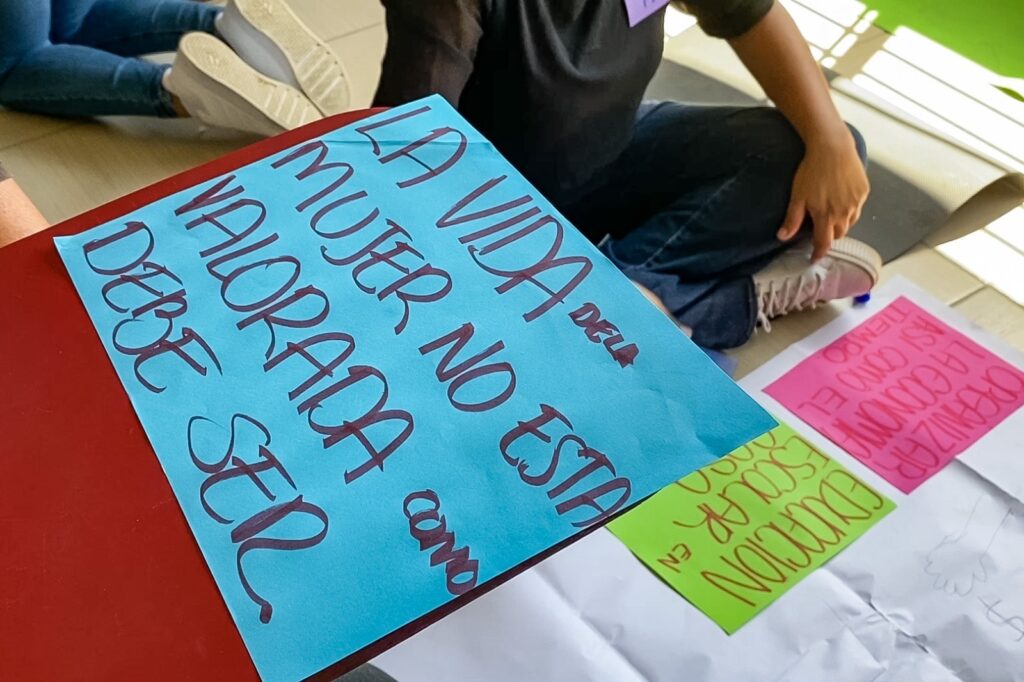 LA VIDA DELA
MUJER NO ESTA
VALORADA COMO
DEBE SER
ORGANIZAR
LA ECONOMIA
ASI COMO EL
TIEMPO
EDUCACION
ESCOLAR EN